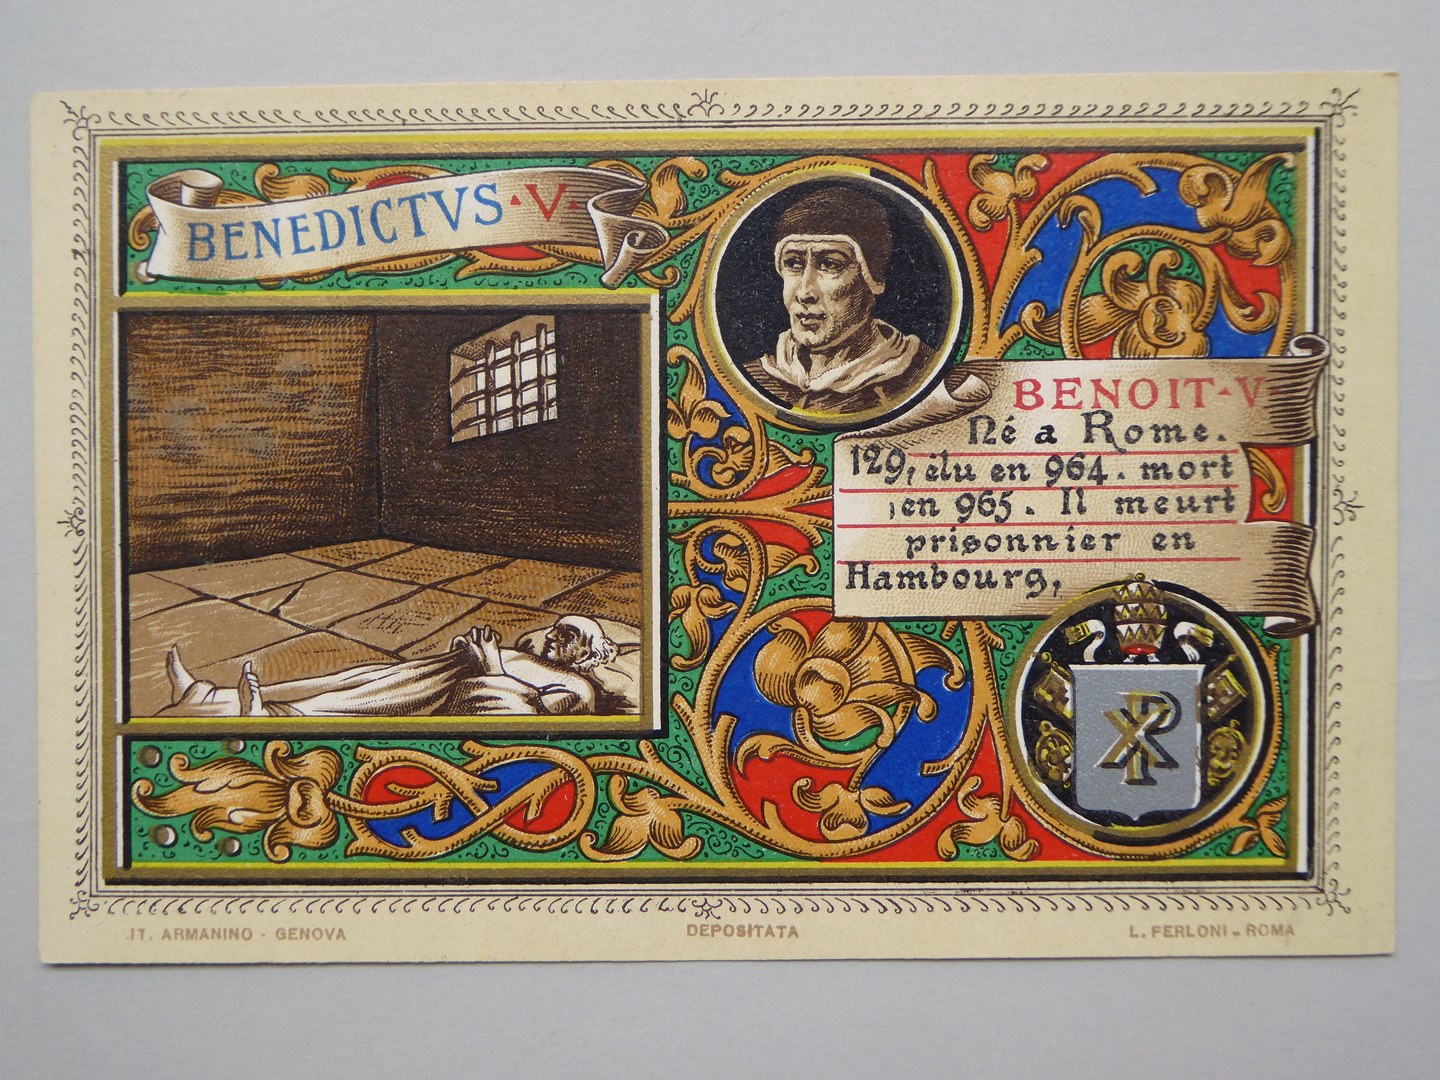 BENEDICTVS · V ·
BENOIT · V ·
Né a Rome.
129, élu en 964. mort
en 965. Il meurt
prisonnier en
Hambourg,
IT. ARMANINO - GENOVA
DEPOSITATA
L. FERLONI - ROMA